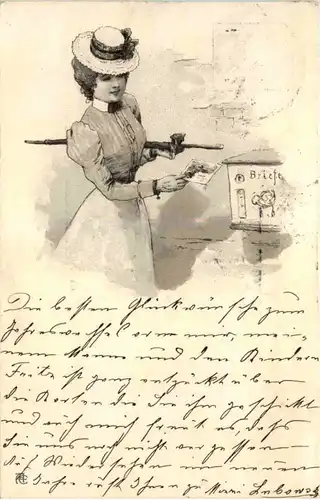 Briefe
Die besten Glückwünsche zum
Jahreswechsel von mir, mei-
nem Manne und den Kindern
Fritz ist ganz entzückt über
die Karten die Sie ihm geschickt
und auch mich freut es, daß
Sie uns noch nicht vergessen
Auf Wiedersehen im neuen
Jahre ruft Ihnen zu Marie Lubowski